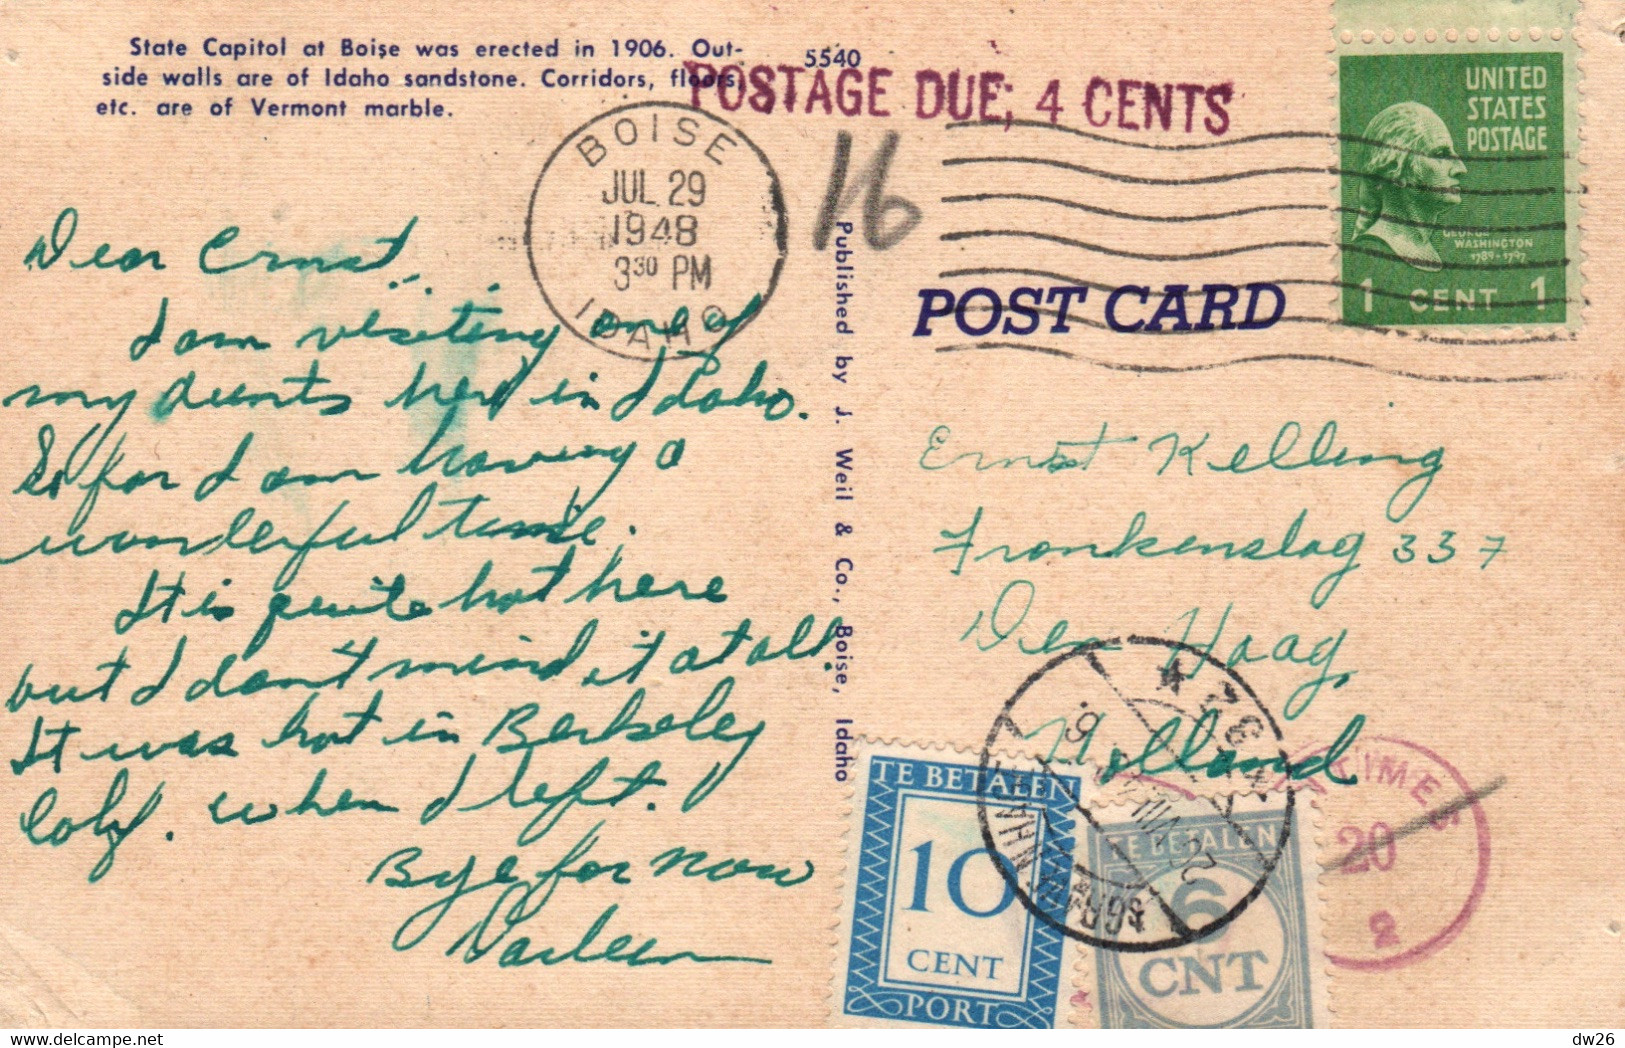 State Capitol at Boise was erected in 1906. Out-
side walls are of Idaho sandstone. Corridors, floors,
etc. are of Vermont marble.
5540
POSTAGE DUE; 4 CENTS
BOISE
JUL 29
1948
3 30 PM
IDAHO
16
UNITED
STATES
POSTAGE
GEORGE
WASHINGTON
1789-1797
1 CENT 1
POST CARD
Published by J. Weil & Co., Boise, Idaho
Dear Ernst,
I am visiting one of
my aunts here in Idaho.
So far I am having a
wonderful time.
It is quite hot here
but I don't mind it at all.
It was hot in Berkeley
Calif. when I left.
Bye for now
Darleen
Ernst Kelling
Frankenslag 337
Den Haag
Holland
TE BETALEN
10
CENT
PORT
TE BETALEN
6
CNT
'SGRAVENHAGE
32
TIMES
20
2
dw26